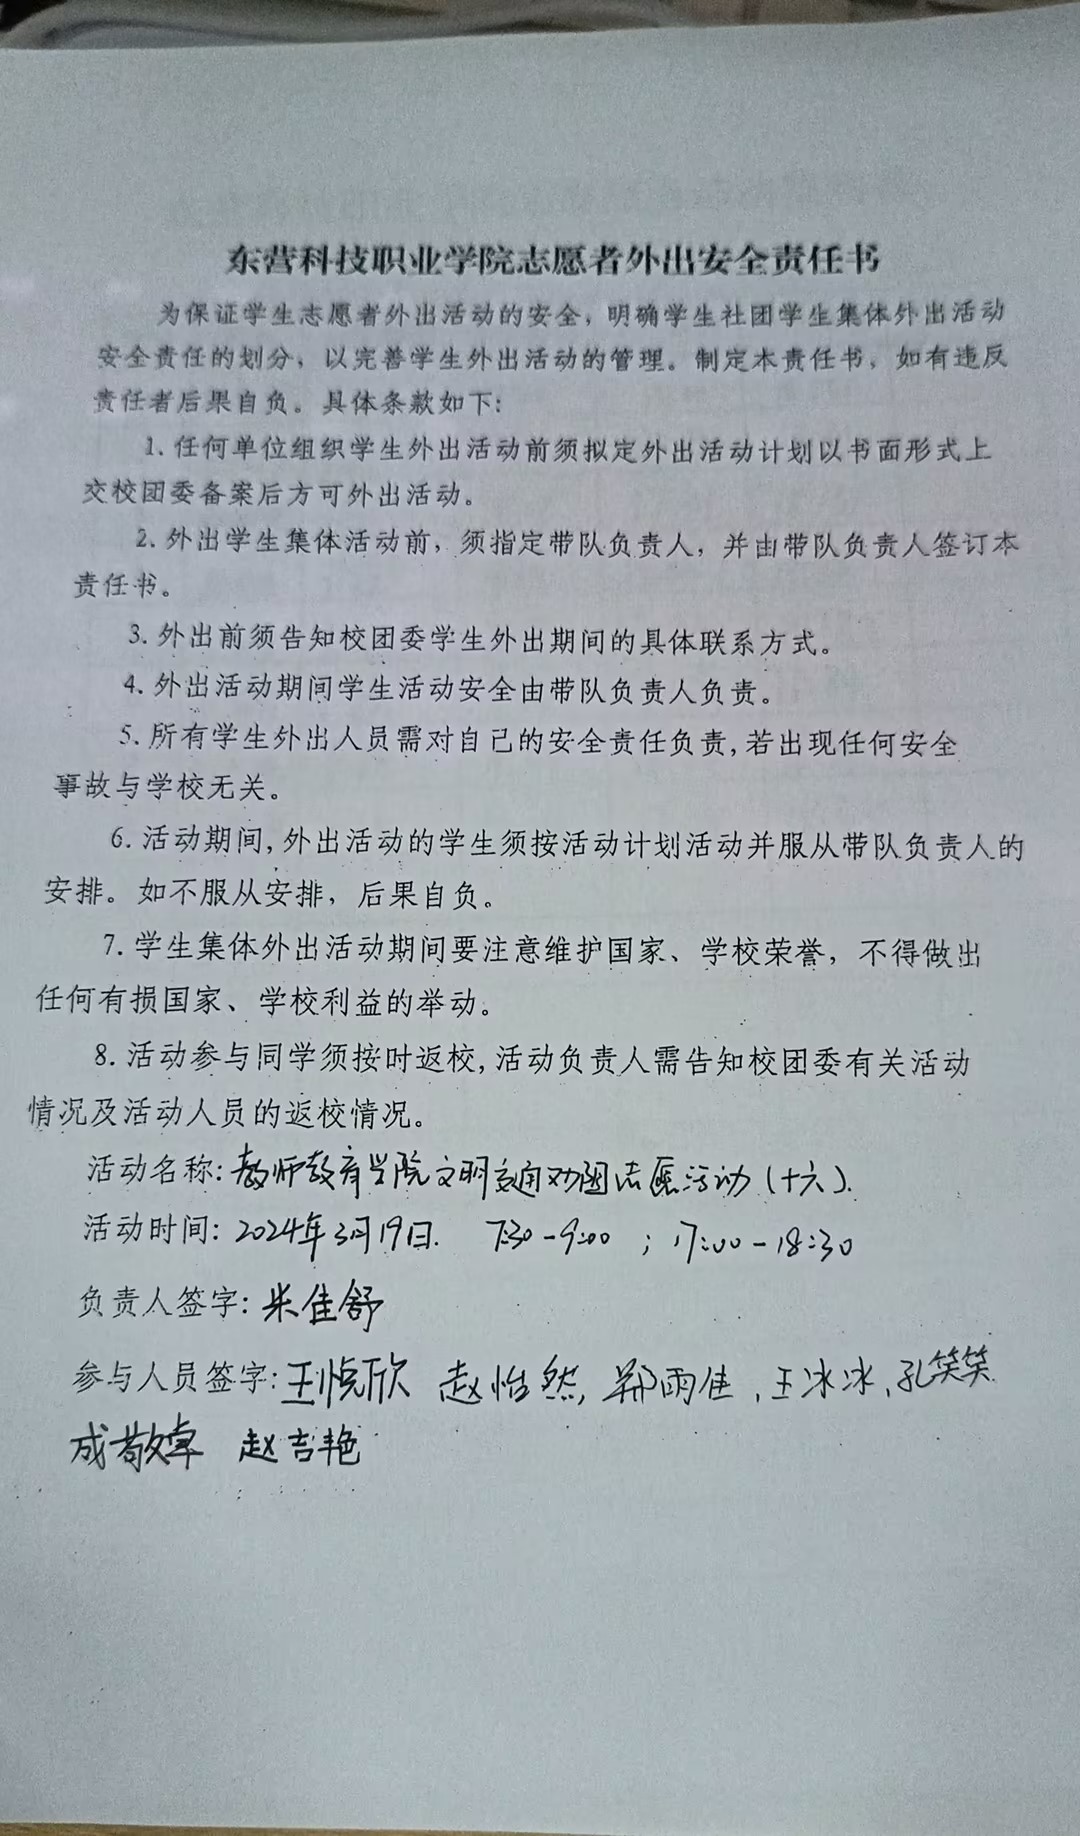 东营科技职业学院志愿者外出安全责任书
为保证学生志愿者外出活动的安全，明确学生社团学生集体外出活动
安全责任的划分，以完善学生外出活动的管理。制定本责任书，如有违反
责任者后果自负。具体条款如下:
1.任何单位组织学生外出活动前须拟定外出活动计划以书面形式上
交校团委备案后方可外出活动。
2.外出学生集体活动前，须指定带队负责人，并由带队负责人签订本
责任书。
3.外出前须告知校团委学生外出期间的具体联系方式。
4.外出活动期间学生活动安全由带队负责人负责。
5.所有学生外出人员需对自己的安全责任负责,若出现任何安全
事故与学校无关。
6.活动期间,外出活动的学生须按活动计划活动并服从带队负责人的
安排。如不服从安排，后果自负。
7.学生集体外出活动期间要注意维护国家、学校荣誉，不得做出
任何有损国家、学校利益的举动。
8.活动参与同学须按时返校,活动负责人需告知校团委有关活动
情况及活动人员的返校情况。
活动名称:教师教育学院文明交通劝阻志愿活动(十六).
活动时间:2024年3月19日. 7:30-9:00 ; 17:00-18:30
负责人签字:米佳舒
参与人员签字:王悦欣 赵怡然, 郑雨佳、王冰冰、孔笑笑.
成敬卓 赵吉艳